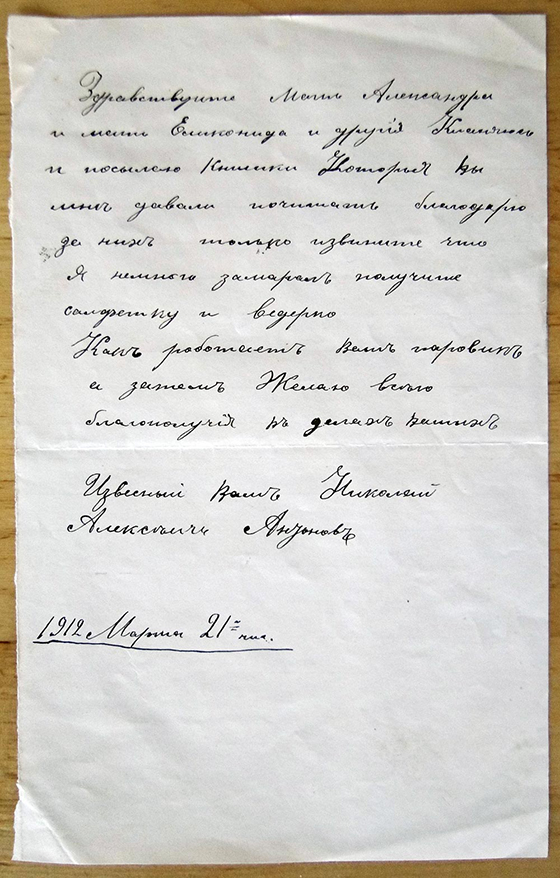 Здравствуите Мать Александра
и мать Еликонида и другия Кланяюсь
и посылаю Книшки Которыя вы
мнѣ давали почитать благодарю
за нихъ только извините что
Я немного замаралъ получите
салфетку и ведерко
Какъ работаетъ вашъ паровикъ
а затемъ Желаю всего
благополучія въ делахъ вашихъ
Извесный вамъ Николай
Алексѣичь Антоновъ
1912 Марта 21го чис.